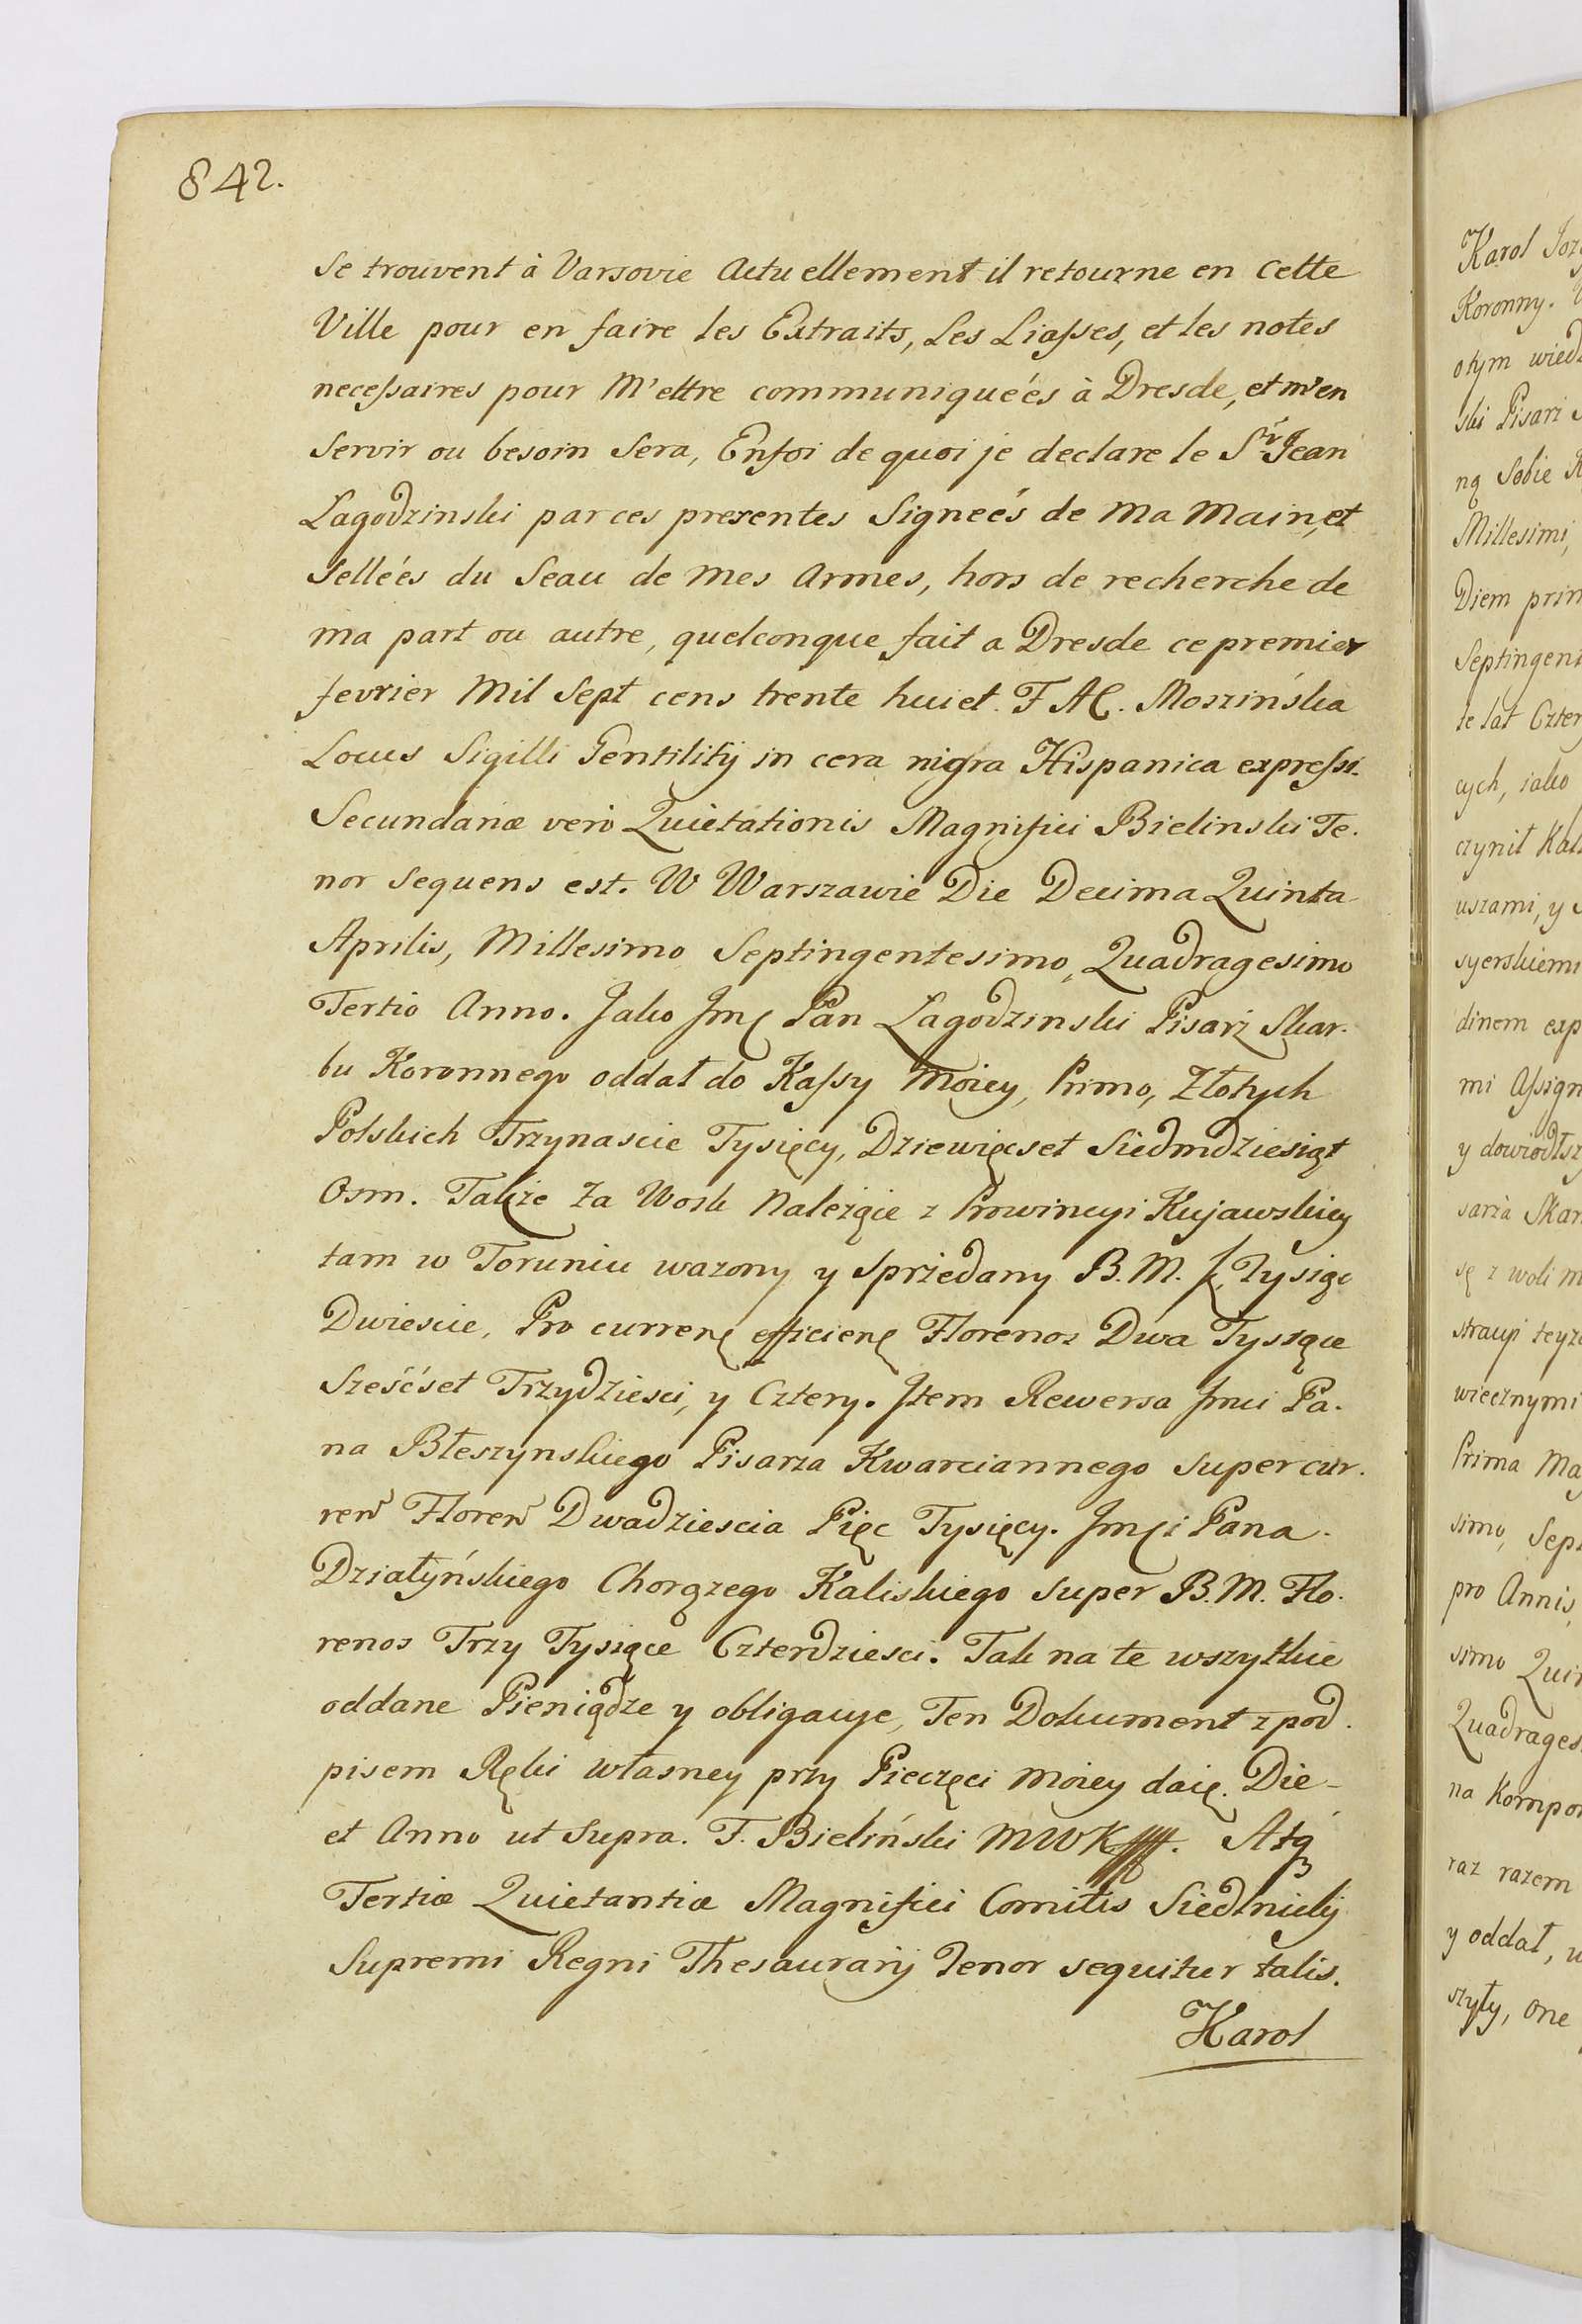 842.
Se trouvent à Varsovie Actuellement il retourne en Cette
Ville pour en faire les Extraits, Les Liasses, et les notes
necessaires pour M'ettre communiqueés à Dresde, et m'en
Servir ou besoin Sera, Enfoi de quoi je declare le Sr Jean
Lagodzinski par ces presentes Signeés de Ma Main, et
Selleés du Seau de Mes Armes, hors de recherche de
ma part ou autre, quelconque fait a Dresde ce premier
fevrier Mil Sept cens trente huict. F A C. Moszińska
Locus Sigilli Gentilitÿ in cera nigra Hispanica expressi.
Secundariæ vero Quietationis Magnifici Bielinski Te.
nor Sequens est. W Warszawie Die Decima Quinta
Aprilis, Millesimo Septingentesimo, Quadragesimo
Tertio Anno. Jako Jmć Pan Lagodzinski Pisarz Skar.
bu Koronnego oddał do Kassy Moiey, Primo, Złotych
Polskich Trzynascie Tysięcy, Dziewięcset Siedmdziesiąt
Osm. Także Za Wosk Należące z Prowincyi Kujawskiey
tam w Toruniu wazony y Sprzedany B. M. Tysiąc
Dwiescie, Pro currenę efficienę Florenos Dwa Tysiące
Sześćset Trzydziesci, y Cztery. Jtem Rewersa Jmci Pa.
na Błeszynskiego Pisarza Kwarciannego super cur.
ren Floren Dwadziescia Pięc Tysięcy. Jmći Pana.
Działyńskiego Chorązego Kaliskiego super B. M. Flo.
renos Trzy Tysiące Czterdziesci. Tak na te wszytkie
oddane Pieniądze y obligacye, Ten Dokument z pod.
pisem Ręki własney przy Pieczęci Moiey daię. Die-
et Anno ut Supra. F. Bieliński MWK. Atq3
Tertiæ Quietantiæ Magnifici Comitis Siedlnickÿ
Supremi Regni Thesaurarÿ Tenor sequitur talis.
Karol
Karol Joz
Koronny.
otym wied
ski Pisarz
ną Sobie
Millesimi,
Diem prim
Septingent
te lat Czter
cych, iako
czynił Kal
uszami, y
syerskiemi
dinem exp
mi Assign
y dowiodłsz
sarza Skar
sę z woli m
straupi teyz
wiecznymi
Prima Ma
simo, Sep
pro Annis,
simo Quin
Quadrages
na Kompor
raz razem
y oddał,
szyły, one